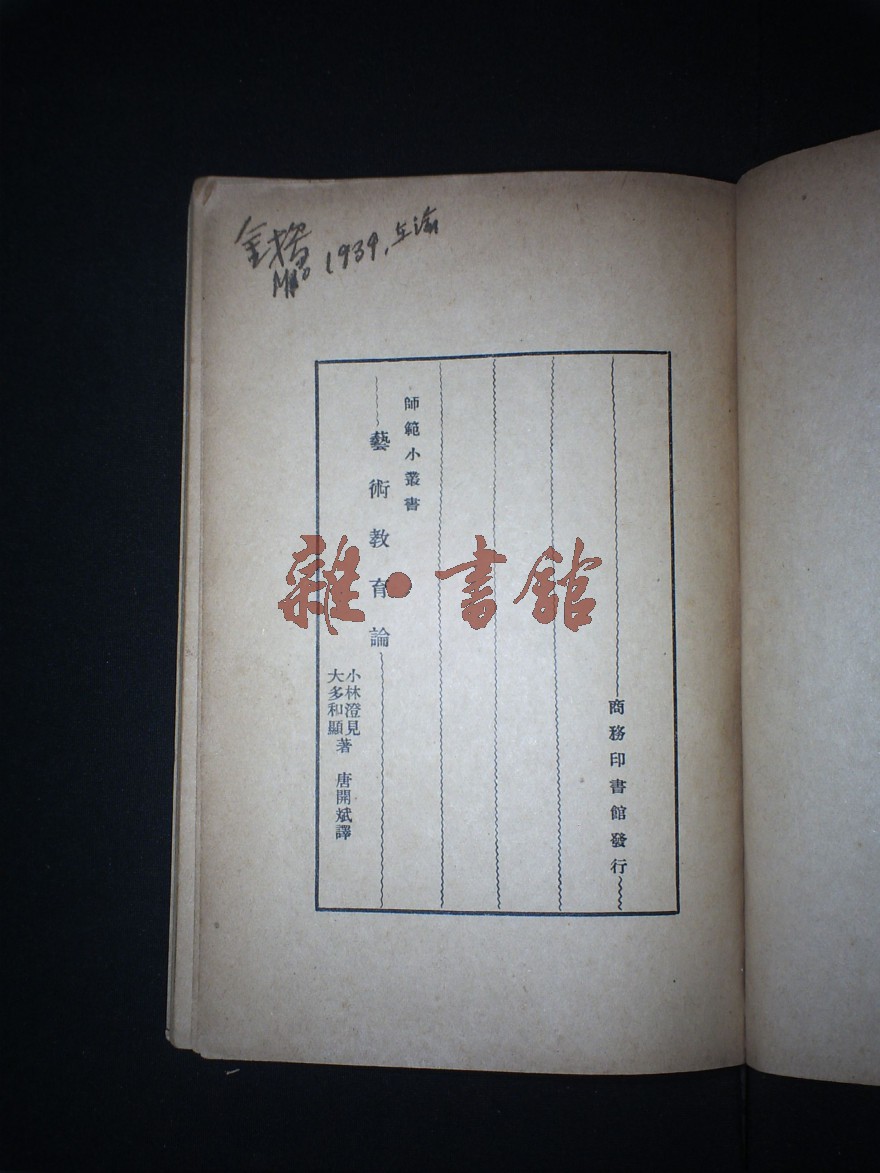 1939,
師範小叢書
藝術教育論
小林澄見
大多和顯著
唐開斌譯
商務印書館發行
雜·書館